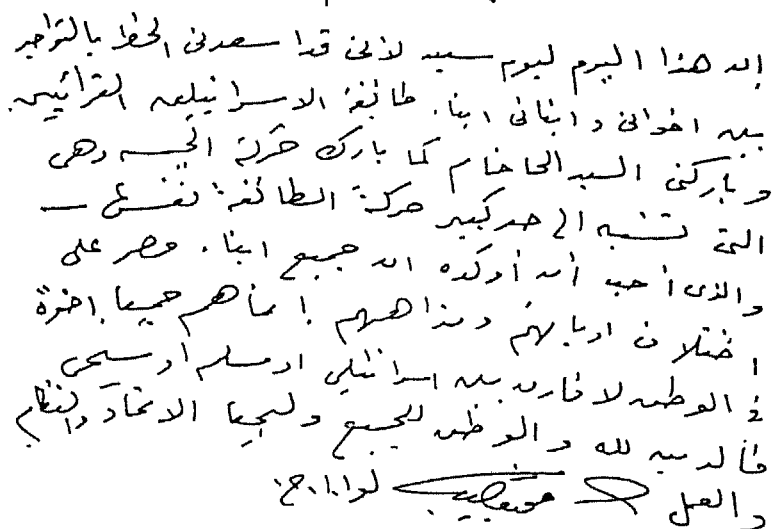 إن هذا اليوم ليوم سعيد لأننى قد أسعدنى الحظ بالتواجد
بين اخوانى وابنائى ابناء طائفة الاسرائيليين القرائيين
وباركنى السيد الحاخام كما بارك حركة الجيش وهى
التى تشبه الى حد كبير حركة الطائفة نفسها —
والذى أحب أن أؤكده ان جميع ابناء مصر على
اختلاف اديانهم ومذاهبهم إنما هم جميعا إخوة
فى الوطن لا فارق بين اسرائيلى او مسلم او مسيحى
فالدين لله والوطن للجميع وليحيا الاتحاد والنظام
والعمل محمد نجيب لواء أ.ح.